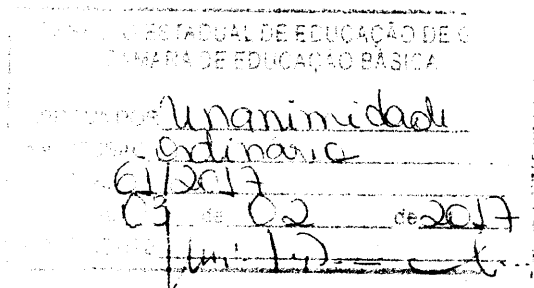 ESTADUAL DE EDUCAÇÃO DE
CÂMARA DE EDUCAÇÃO BÁSICA
POR Unanimidade
Ordinaria
61/2017
03 de 02 de 2017